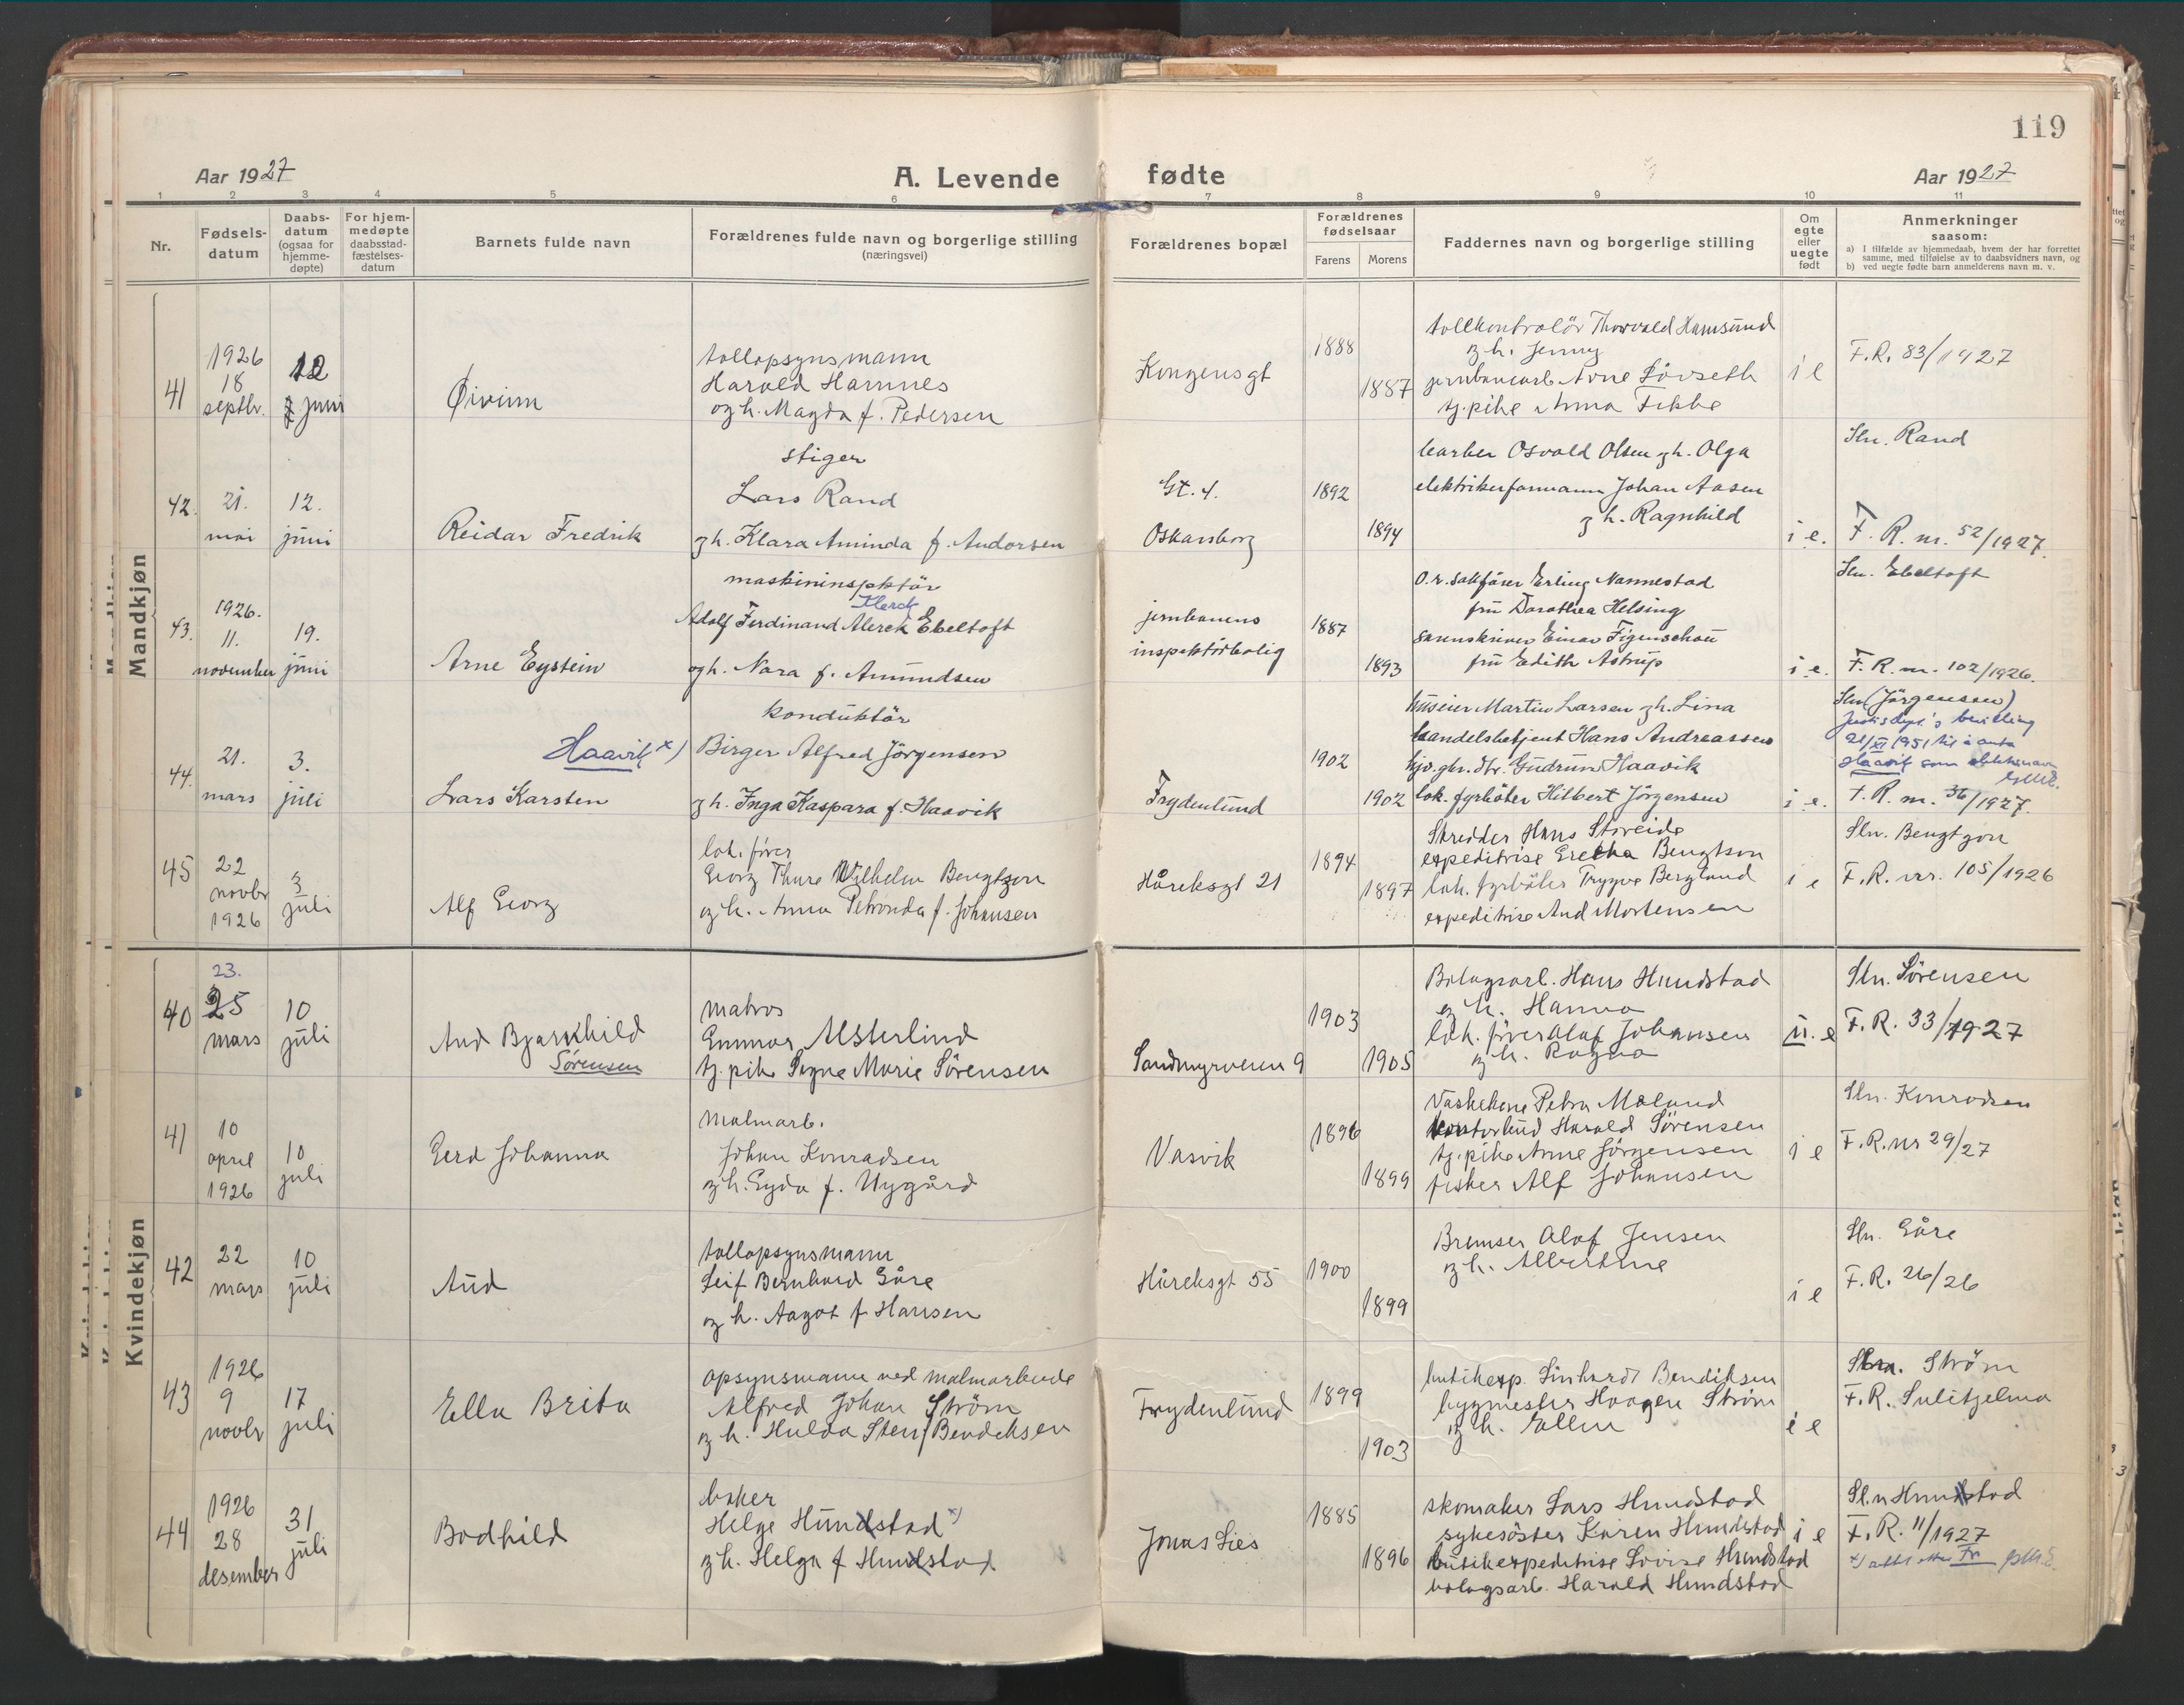 119
Aar 1927
A. Levende
fødte
Aar 1927
1 2 3 4 5 6 7 8 9 10 11
Nr.
Fødsels-
datum
Daabs-
datum
(ogsaa for
hjemme-
døpte)
For hjem-
medøpte
daabsstad-
fæstelses-
datum
Barnets fulde navn
Forældrenes fulde navn og borgerlige stilling
(næringsvei)
Forældrenes bopæl
Forældrenes
fødselsaar
Farens
Morens
Faddernes navn og borgerlige stilling
Om
egte
eller
uegte
født
Anmerkninger
saasom:
a) I tilfælde av hjemmedaab, hvem der har forrettet
samme, med tilføielse av to daabsvidners navn, og
b) ved uegte fødte barn anmelderens navn m. v.
Mandkjøn
41
1926
18
septbr.
12
juni
Øivinn
tollopsynsmann
Harald Hamnes
og h. Magda f. Pedersen
Kongensgt
1888
1887
tollkontrolör Thorvald Hamsund
og h. Jenny
jernbanearb. Arne Lövseth
tj. pike Anna Fikke
i e
F.R. 83/1927
42.
21.
mai
12.
juni
Reidar Fredrik
stiger
Lars Rand
og h. Klara Aminda f. Andorsen
Gt. 4.
Oskarsborg
1892
1894
barber Osvald Olsen og h. Olga
elektrikerformann Johan Aasen
og h. Ragnhild
i e.
Sln. Rand
F. R. nr. 52/1927.
43.
1926.
11.
november
19.
juni
Arne Eystein
maskininspektör
Klerck
Adolf Ferdinand Alerck Ebeltoft
og h. Nora f. Amundsen
jernbanens
inspektörbolig
1887
1893
o.r. sakförer Erling Nannestad
fru Dorothea Helsing
sorenskriver Einar Figenschou
fru Edith Astrup
i e.
Sln. Ebeltoft
F. R. nr. 102/1926.
44.
21.
mars
3.
juli
Lars Karsten
Haavik x)
konduktör
Birger Alfred Jörgensen
og h. Inga Kaspara f. Haavik
Frydenlund
1902
1902
huseier Martin Larsen og h. Lina
handelsbetjent Hans Andreassen
hjv. gbr. dtr. Gudrun Haavik
lok. fyrböter Hilbert Jörgensen
i e.
Sln (Jörgensen)
Justisdept's bevilling
21/XI 1951 til å anta
Haavik som slektsnavn
F. R. nr. 36/1927.
45
22
novbr
1926
3
juli
Alf Georg
lok. förer
Georg Thure Wilhelm Bengtzon
og h. Anna Petronda f. Johansen
Håreksgt 21
1894
1897
Skredder Hans Storeide
expeditrise Gretha Bengtson
lok. fyrböter Trygve Berglund
expeditrise Aud Mortensen
i e
Sln. Bengtzon
F.R. nr. 105/1926
Kvindekjøn
40
23.
25
mars
10
juli
Aud Bjarkhild
Sörensen
matros
Gunnar Alsterlind
tj. pike Signe Marie Sörensen
Sandmyrveien 9
1903
1905
Bolagsarb. Hans Hundstad
og h. Hanna
lok. förer Olaf Johansen
og h. Ragna
u. e
Sln. Sörensen
F.R. 33/1927
41
10
april
1926
10
juli
Gerd Johanna
Malmarb.
Johan Konradsen
og h. Gyda f. Nygård
Vasvik
1896
1899
Vaskekone Petra Mæland
kontorbud Harald Sörensen
tj. pike Anne Jörgensen
fisker Alf Johansen
i e
Sln. Konradsen
F.R. nr 29/27
42
22
mars
10
juli
Aud
tollopsynsmann
Leif Bernhard Gåre
og h. Aagot f Hansen
Håreksgt 55
1900
1899
Bremser Olaf Jensen
og h. Albertine
i e
Sln. Gåre
F.R. 26/26
43
1926
9
novbr
17
juli
Ella Brita
opsynsmann ved malmarbeide
Alfred Johan Ström
og h. Hulda Sten f Bendiksen
Frydenlund
1899
1903
butikexp. Linhardt Bendiksen
bygmester Haagen Ström
og h. Ellen
i e
Sln. Ström
F.R. Sulitjelma
44
1926
28
desember
31
juli
Bodhild
baker
Helge Hundstad x)
og h. Helga f Hundstad
Jonas Lies
1885
1896
skomaker Lars Hundstad
sykesöster Karen Hundstad
butikexpeditrise Lovise Hundstad
bolagsarb. Harald Hundstad
i e
Sln Hundstad
F.R. 11/1927
x) rettet etter Fr